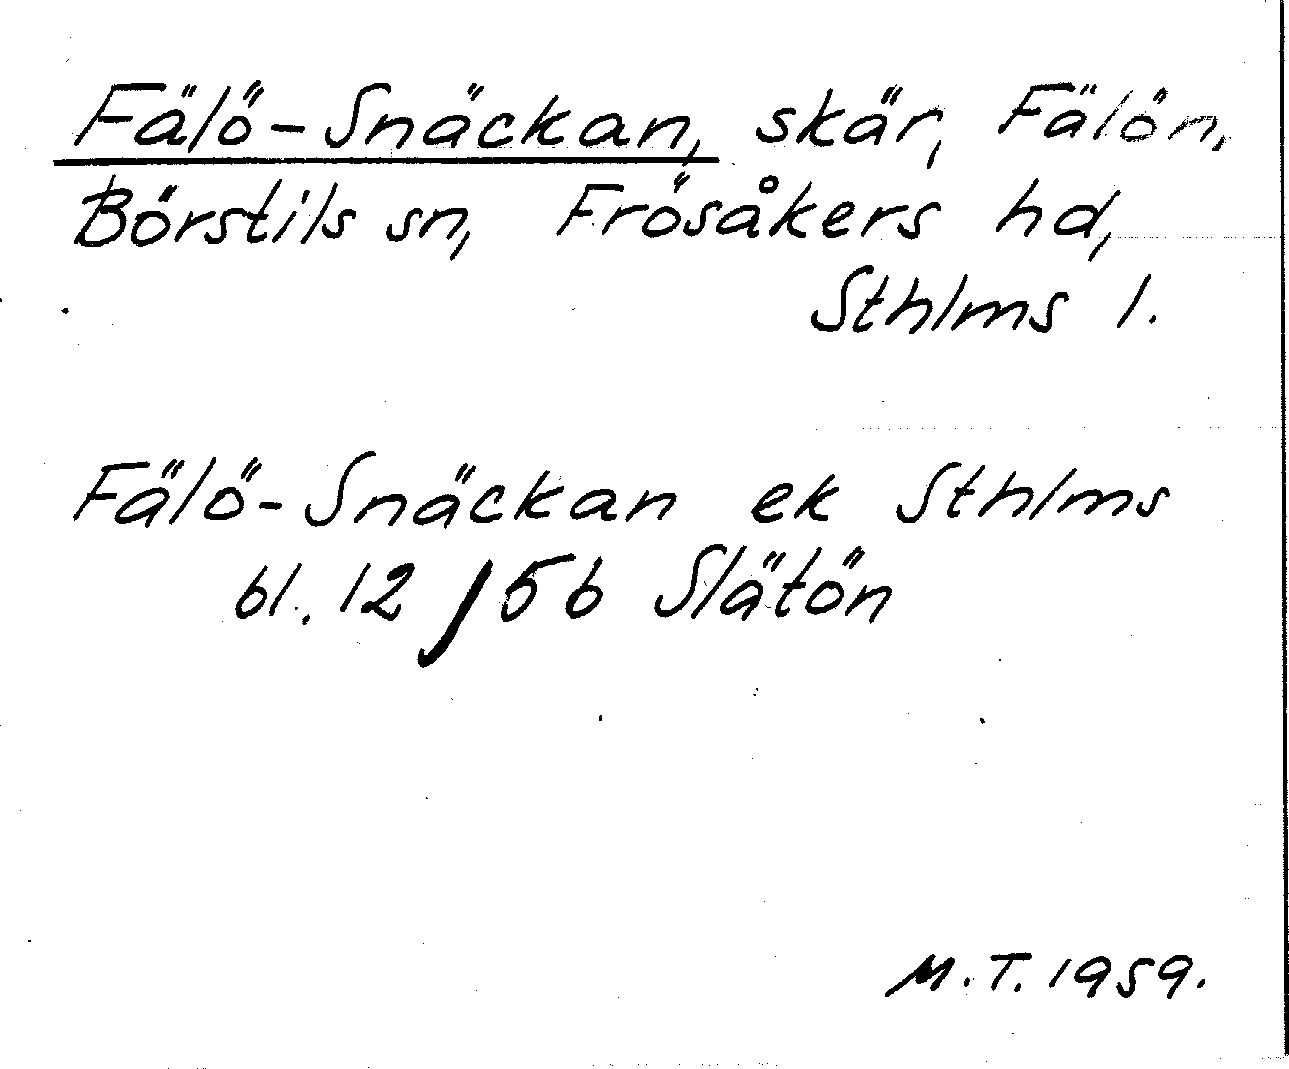 Fälö-Snäckan, skär, Fälön,
Börstils sn, Frösåkers hd,
Sthlms l.
Fälö-Snäckan ek Sthlms
bl. 12 J 5b Slätön
M.T. 1959.